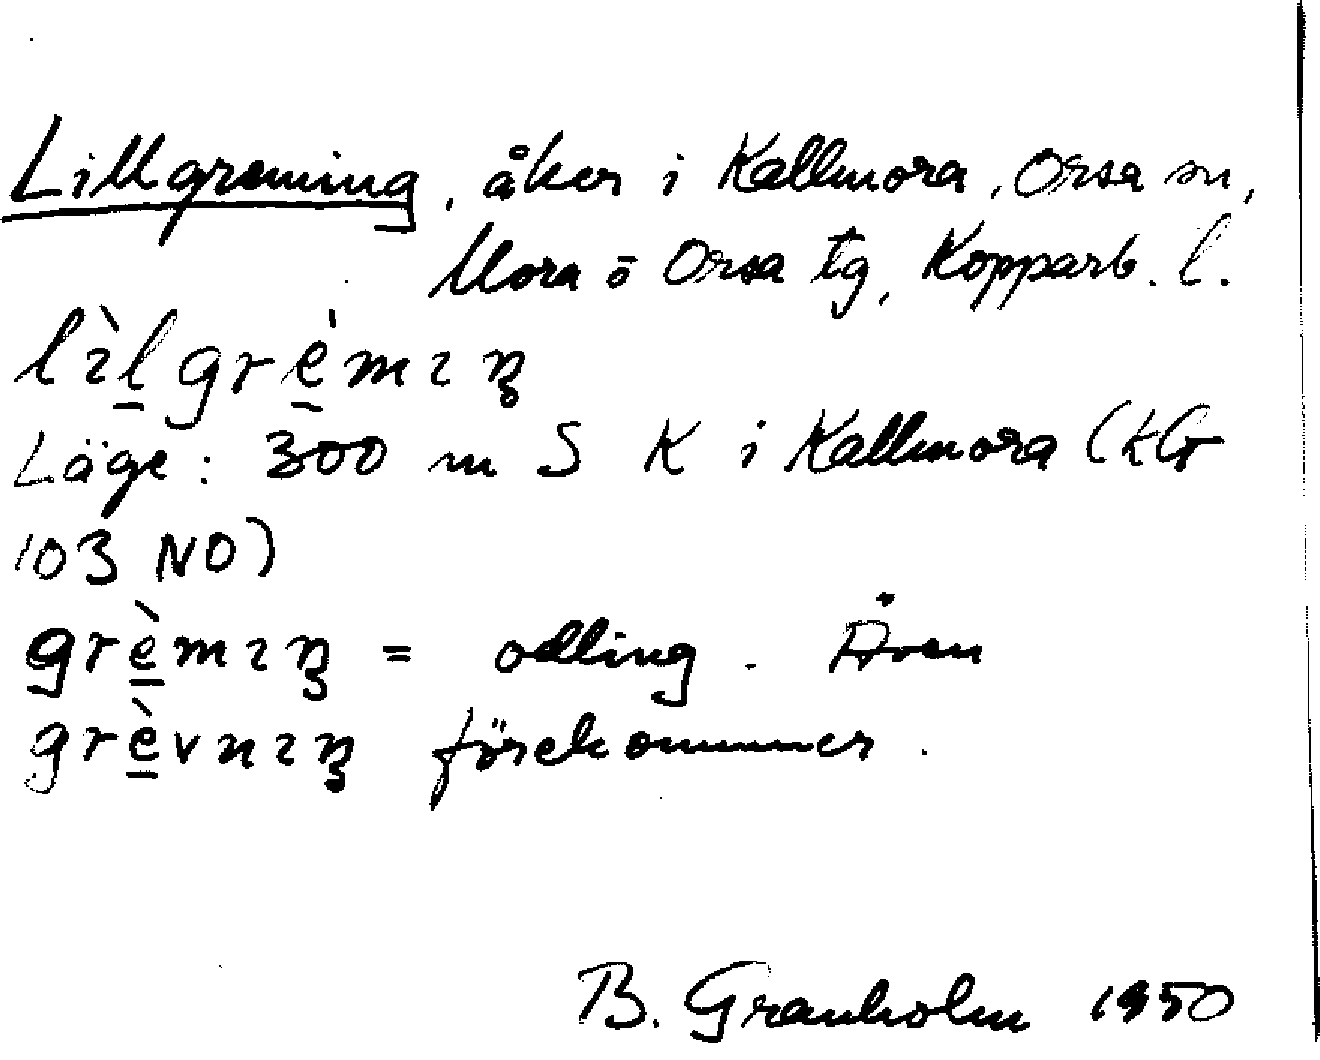 Lillgreming, åker i Kallmora, Orsa sn,
Mora o Orsa tg, Kopparb. l.
lìlgrèmıŋ
Läge: 300 m S K i Kallmora (KG
103 NO)
grèmıŋ = odling. Även
grèvnıŋ förekommer.
B. Granholm 1950